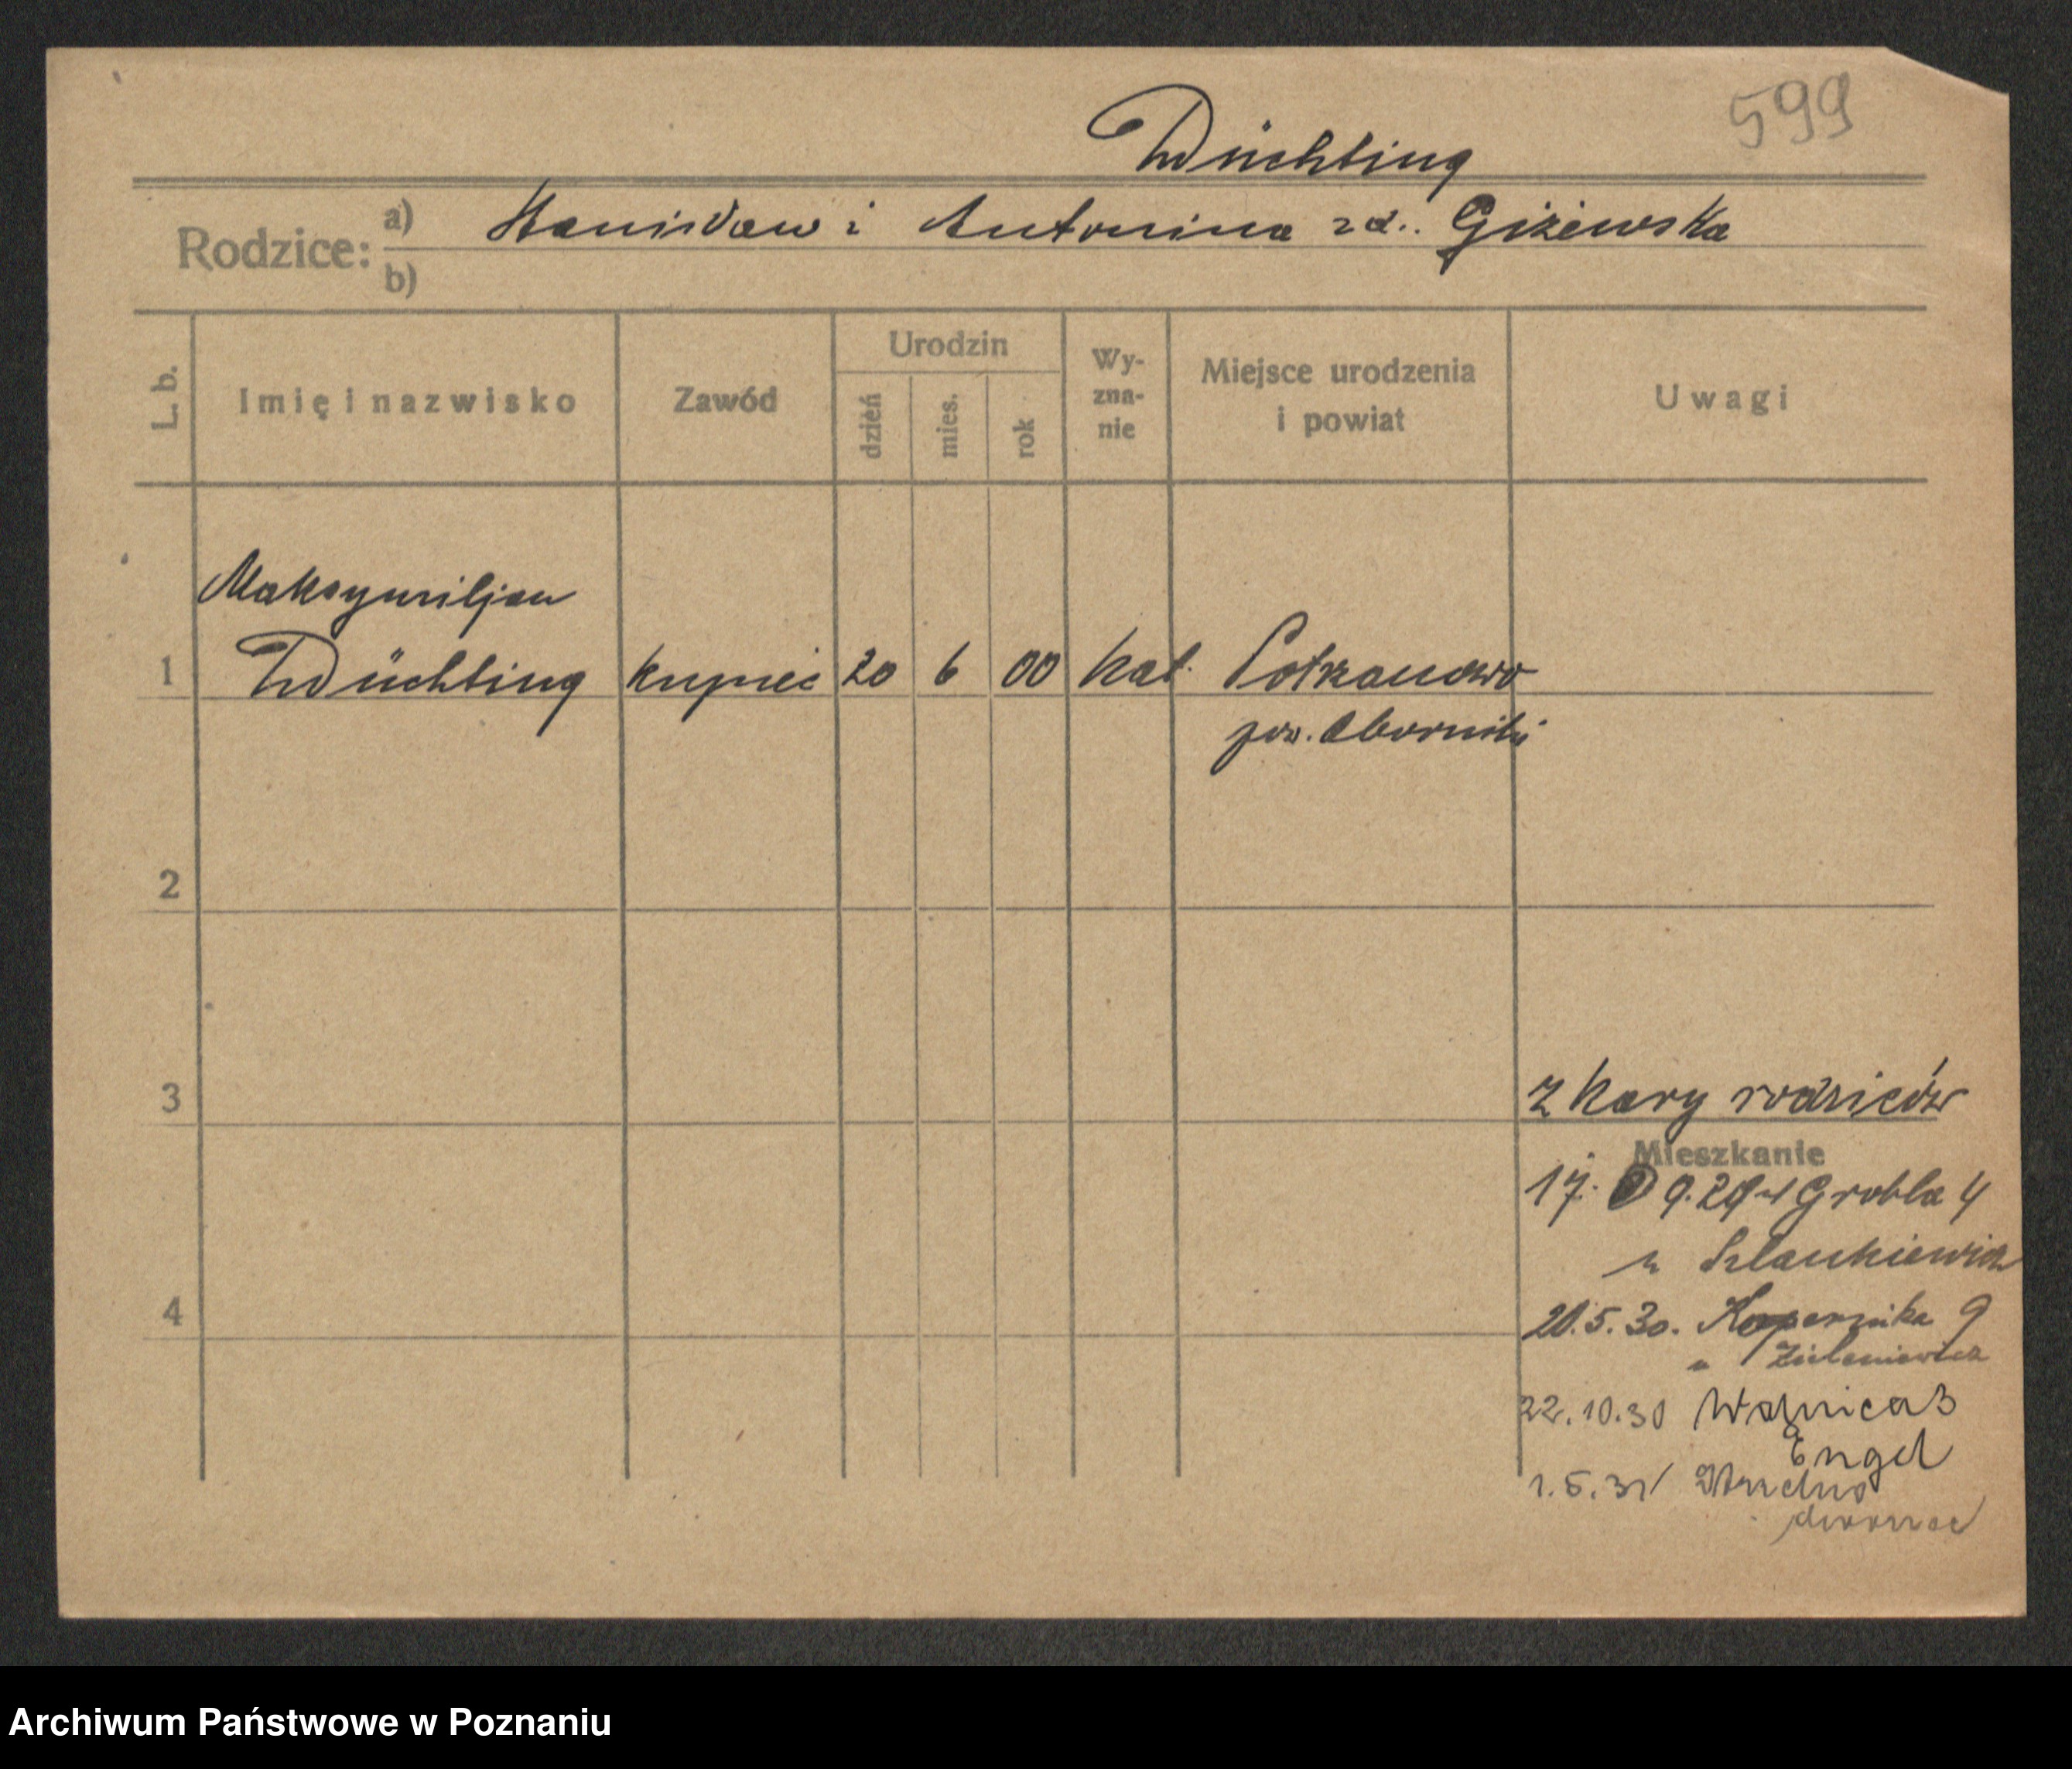 599
Düchting
Rodzice: a) Stanisław i Antonina zd.. Giżewska
b)
L. b.
Imię i nazwisko
Zawód
Urodzin
dzień
mies.
rok
Wy-
zna-
nie
Miejsce urodzenia
i powiat
Uwagi
Maksymiljan
1 Düchting kupiec 20 6 00 kat. Potrzanowo
pow. Oborniki
2
3
z kary rodziców
Mieszkanie
17. 9. 29 Grobla 4
u Szlankiewicz
4
20.5.30. Kopernika 9
u Zieleniewicz
22.10.30 Woźnica 3
Engel
1.5.31
Archiwum Państwowe w Poznaniu